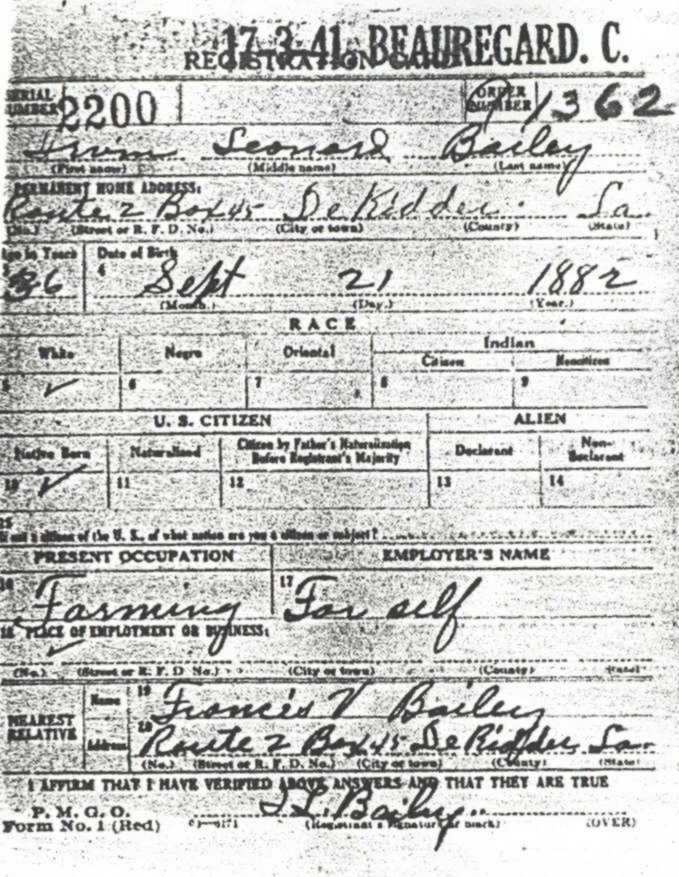 17-3-41. BEAUREGARD. C.
REGISTRATION CARD
SERIAL NUMBER 2200 ORDER NUMBER 1362
Irvin Leonard Bailey
(First name) (Middle name) (Last name)
PERMANENT HOME ADDRESS:
Route 2 Box 45 De Ridder La.
(No.) (Street or R. F. D. No.) (City or town) (County) (State)
Age in Years Date of Birth
3 36 4 Sept 21 1882
(Month.) (Day.) (Year.)
RACE
White Negro Oriental Indian
Citizen Noncitizen
5 ✓ 6 7 8 9
U. S. CITIZEN ALIEN
Native Born Naturalized Citizen by Father's Naturalization Before Registrant's Majority Declarant Non-Declarant
10 ✓ 11 12 13 14
15
If not a citizen of the U. S., of what nation are you a citizen or subject?
PRESENT OCCUPATION EMPLOYER'S NAME
16 Farming 17 For self
18 PLACE OF EMPLOYMENT OR BUSINESS:
(No.) (Street or R. F. D. No.) (City or town) (County) (State)
NEAREST RELATIVE Name 19 Francis V Bailey
Address 20 Route 2 Box 45 De Ridder La.
(No.) (Street or R. F. D. No.) (City or town) (County) (State)
I AFFIRM THAT I HAVE VERIFIED ABOVE ANSWERS AND THAT THEY ARE TRUE
P. M. G. O.
Form No. 1 (Red) I L. Baily
(Registrant's signature or mark) (OVER)